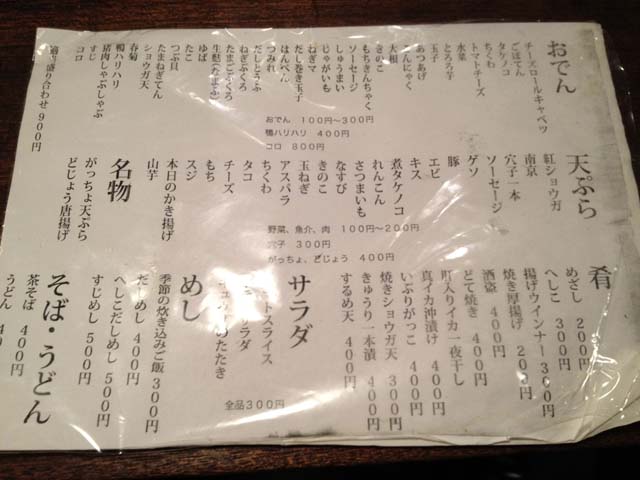 おでん
チーズロールキャベツ
ごぼてん
タケノコ
ちくわ
トマトチーズ
水菜
とろろ芋
玉子
あつあげ
こんにゃく
大根
きのこ
もちきんちゃく
ソーセージ
しゅうまい
じゃがいも
ねぎマ
だし巻き玉子
はんぺん
つみれ
だしとうふ
ねぎぶくろ
たまごぶくろ
ゆば
たこ
つぶ貝
たまねぎてん
ショウガ天
春菊
鴨ハリハリ
猪肉しゃぶしゃぶ
すじ
コロ
盛り合わせ 900円
おでん 100円〜300円
鴨ハリハリ 400円
コロ 800円
天ぷら
紅ショウガ
南京
穴子一本
ソーセージ
ゲソ
豚
エビ
キス
煮タケノコ
れんこん
さつまいも
なすび
きのこ
玉ねぎ
アスパラ
ちくわ
タコ
チーズ
もち
スジ
本日のかき揚げ
山芋
野菜、魚介、肉 100円〜200円
穴子 300円
がっちょ、どじょう 400円
名物
がっちょ天ぷら
どじょう唐揚げ
肴
めざし 200円
へしこ 300円
揚げウインナー 300円
焼き厚揚げ 200円
酒盗 400円
どて焼き 400円
肝入りイカ一夜干し
真イカ沖漬け 400円
いぶりがっこ 400円
焼きショウガ天 300円
きゅうり一本漬 400円
するめ天 400円
サラダ
トスライス
ラダ
たたき
全品300円
めし
季節の炊き込みご飯 300円
だしめし 400円
へしこだしめし 500円
すじめし 500円
そば・うどん
茶そば 400円
うどん